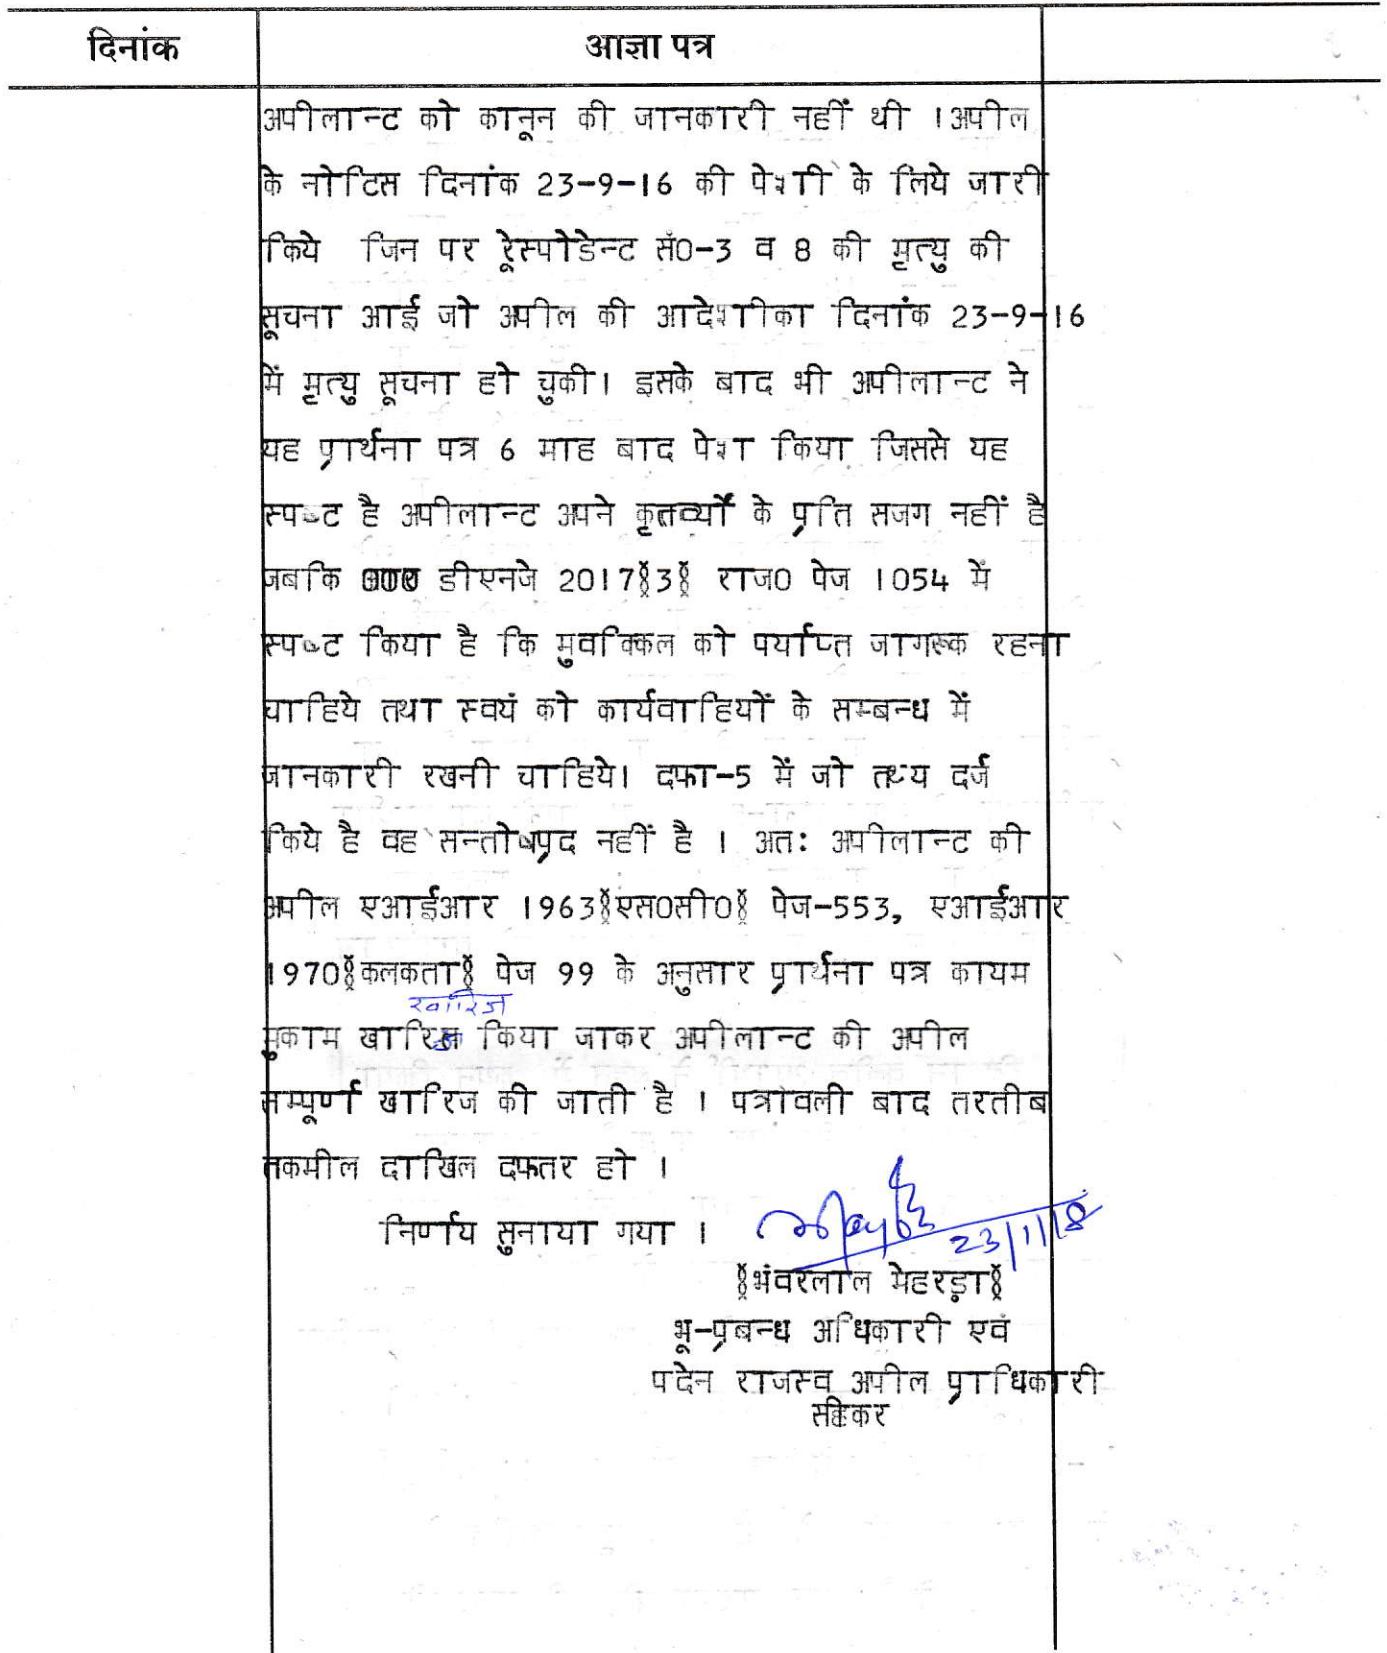 दिनांक आज्ञा पत्र
अपीलान्ट को कानून की जानकारी नहीं थी ।अपील
के नोटिस दिनांक 23-9-16 की पेशी के लिये जारी
किये जिन पर रेस्पोडेन्ट सं0-3 व 8 की मृत्यु की
सूचना आई जो अपील की आदेशीका दिनांक 23-9-16
में मृत्यु सूचना हो चुकी। इसके बाद भी अपीलान्ट ने
यह प्रार्थना पत्र 6 माह बाद पेश किया जिससे यह
स्पष्ट है अपीलान्ट अपने कृतव्यों के प्रति सजग नहीं है
जबकि डीएनजे 2017§3§ राज0 पेज 1054 में
स्पष्ट किया है कि मुवक्किल को पर्याप्त जागरूक रहना
चाहिये तथा स्वयं को कार्यवाहियों के सम्बन्ध में
जानकारी रखनी चाहिये। दफा-5 में जो तथ्य दर्ज
किये है वह सन्तोषप्रद नहीं है । अतः अपीलान्ट की
अपील एआईआर 1963§एस0सी0§ पेज-553, एआईआर
1970§कलकता§ पेज 99 के अनुसार प्रार्थना पत्र कायम
खारिज
मुकाम खारिज किया जाकर अपीलान्ट की अपील
सम्पूर्ण खारिज की जाती है । पत्रावली बाद तरतीब
तकमील दाखिल दफ्तर हो ।
निर्णय सुनाया गया ।
23/1/18
§भंवरलाल मेहरड़ा§
भू-प्रबन्ध अधिकारी एवं
पदेन राजस्व अपील प्राधिकारी
सीकर